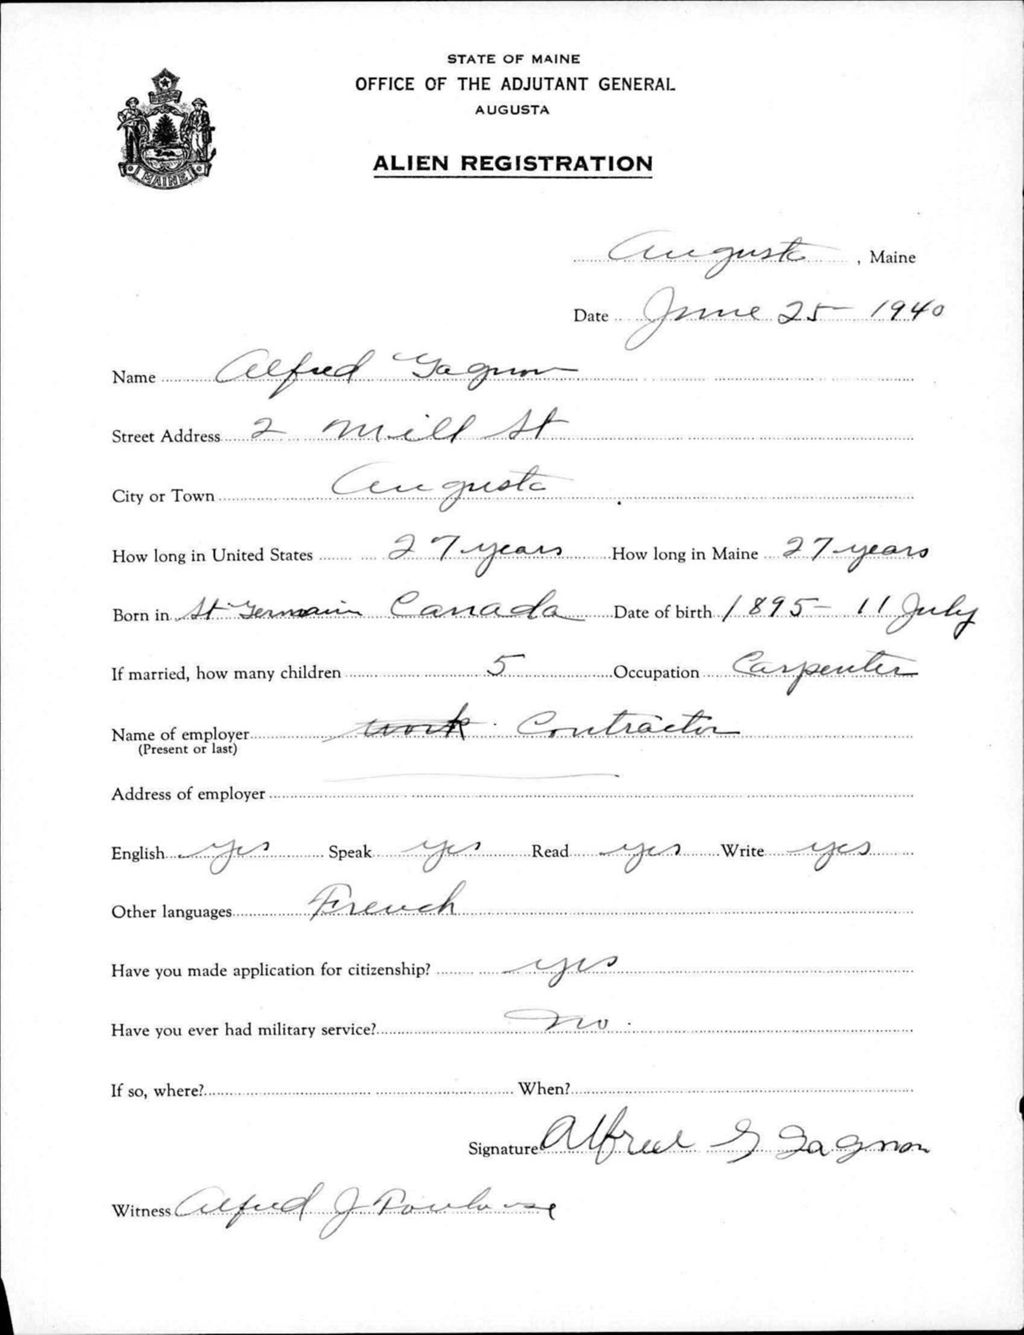 STATE OF MAINE
OFFICE OF THE ADJUTANT GENERAL
AUGUSTA
ALIEN REGISTRATION
MAINE
Augusta, Maine
Date June 25 - 1940
Name Alfred Gagnon
Street Address 2 Mill St
City or Town Augusta
How long in United States 27 years How long in Maine 27 years
Born in St Germain Canada Date of birth 1895 - 11 July
If married, how many children 5 Occupation Carpenter
Name of employer work Contractor
(Present or last)
Address of employer
English yes Speak yes Read yes Write yes
Other languages French
Have you made application for citizenship? yes
Have you ever had military service? no
If so, where? When?
Signature Alfred G Gagnon
Witness Alfred J